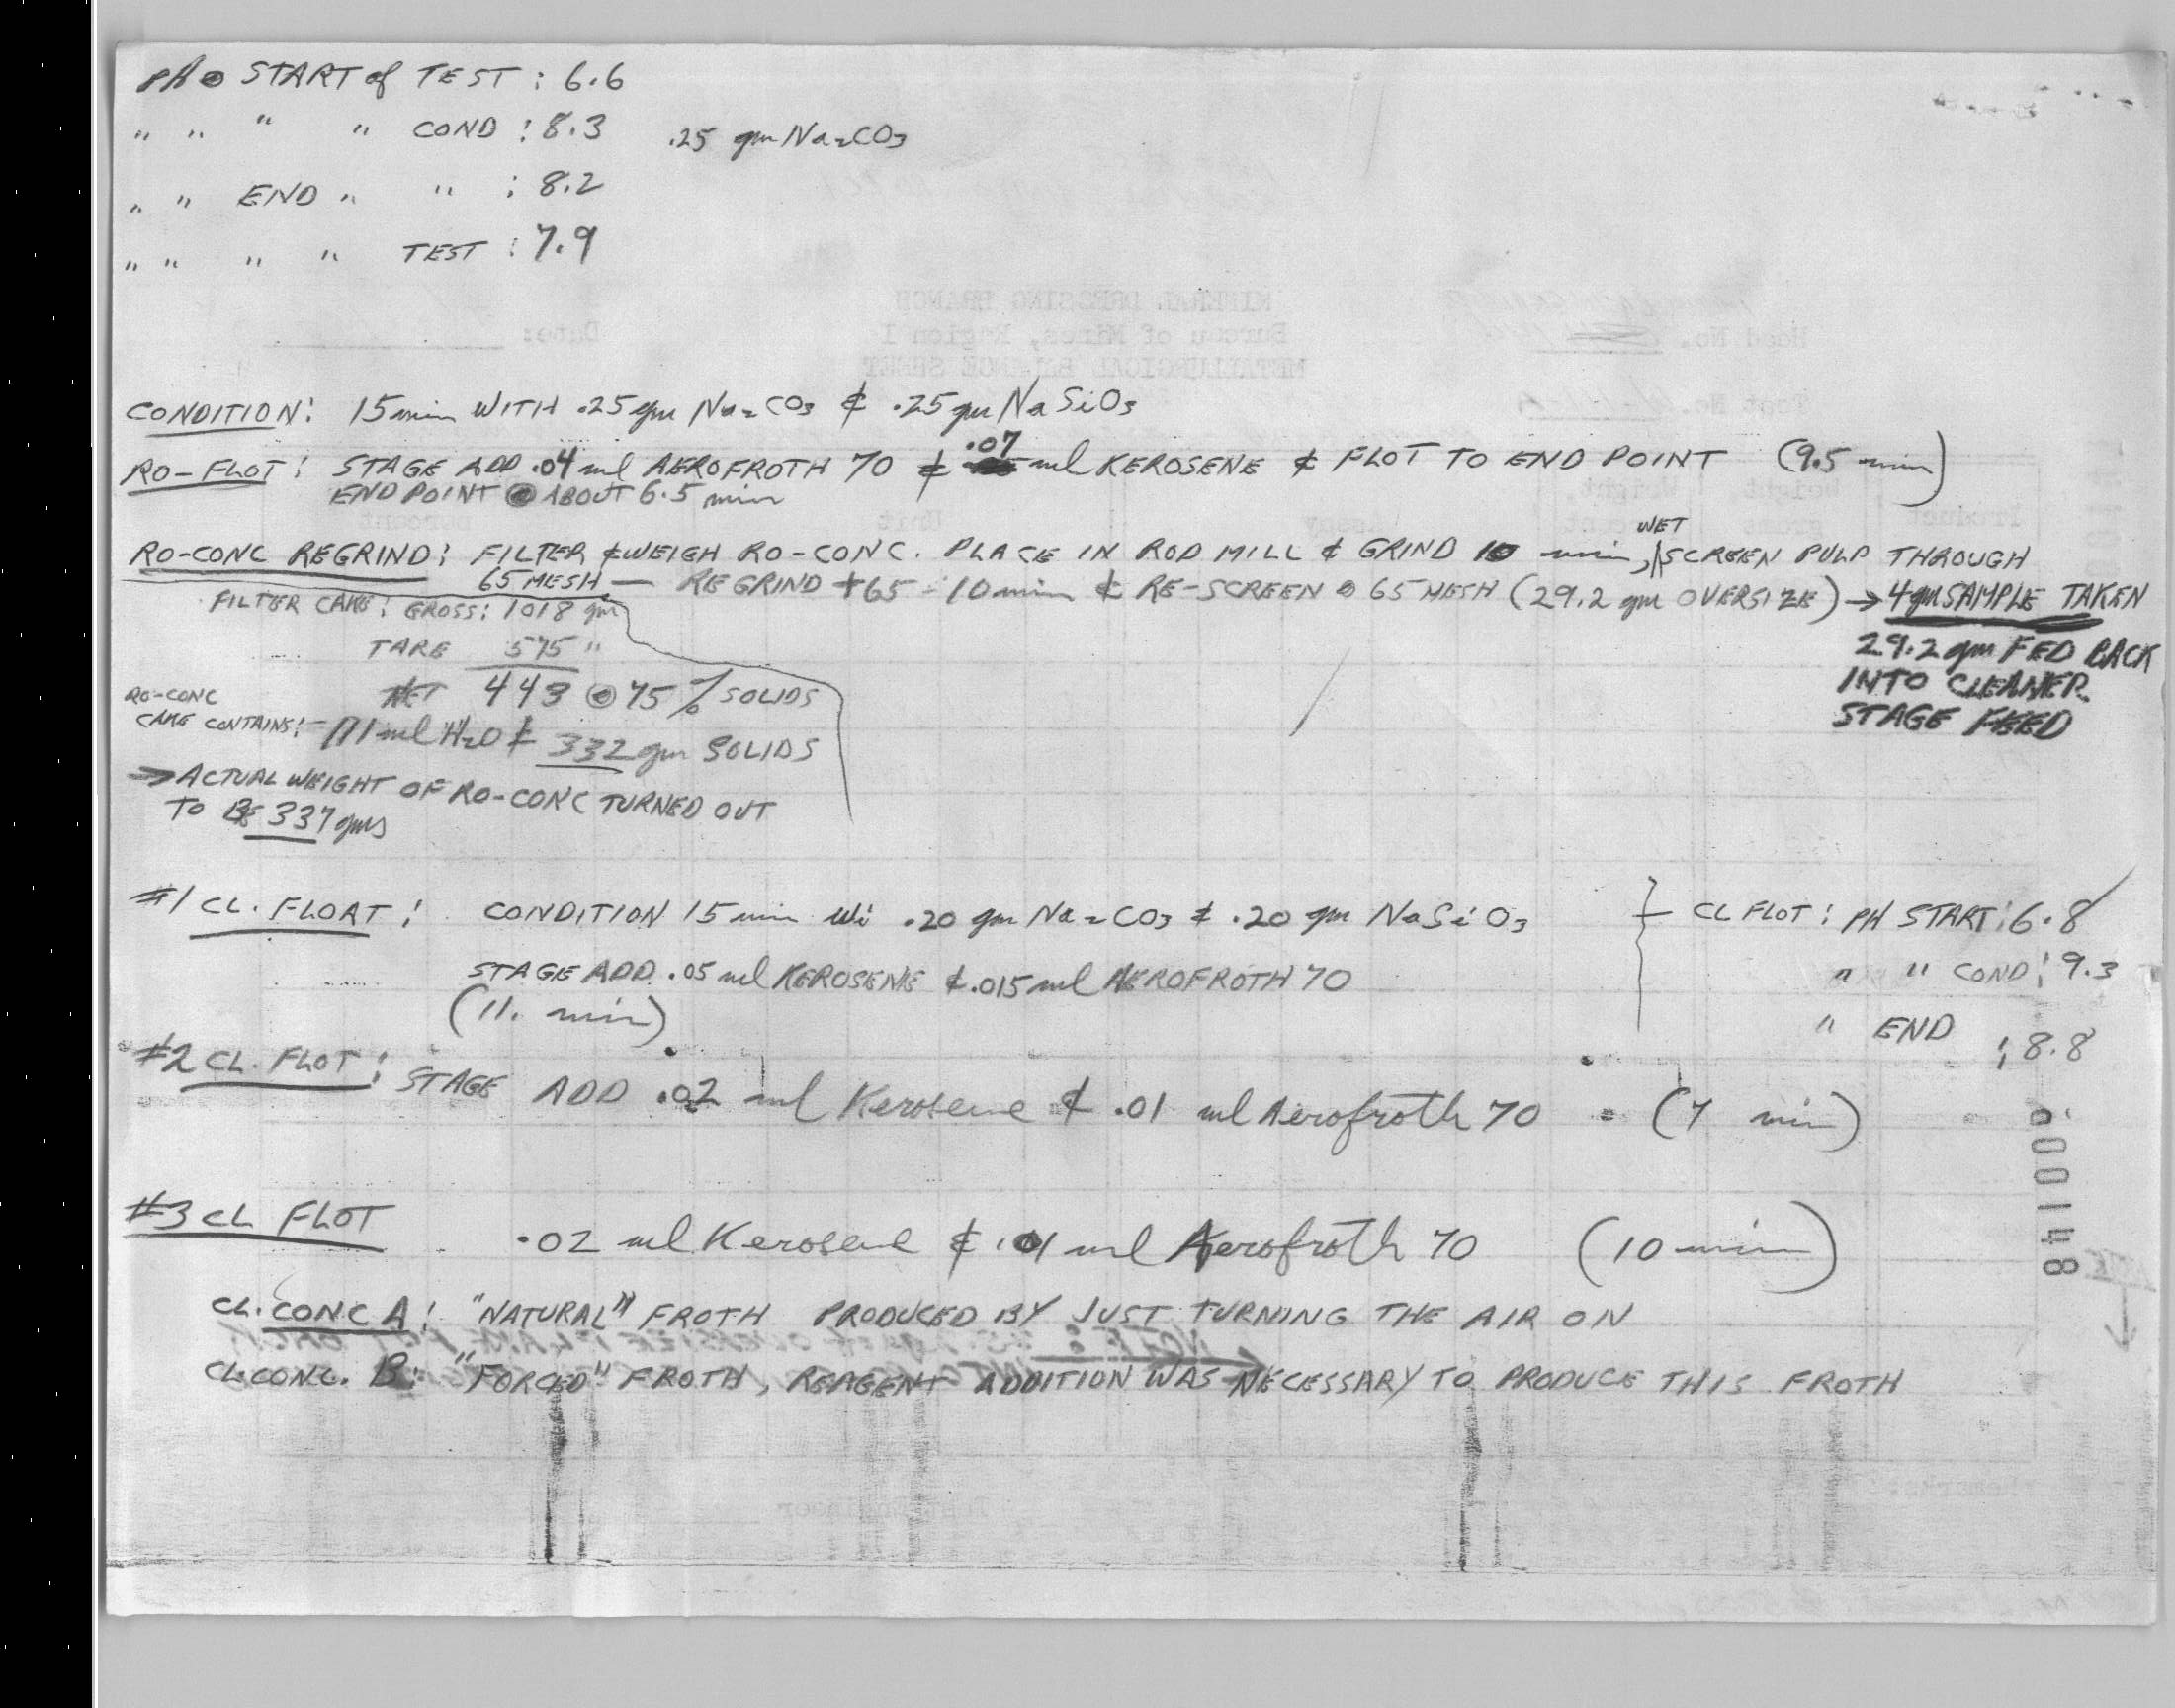 PH @ START of TEST : 6.6
" " " " COND : 8.3 .25 gm Na2CO3
" " END " " : 8.2
" " " " TEST : 7.9
MINERAL DRESSING BRANCH
Head No. Bureau of Mines, Region I Date:
METALLURGICAL BALANCE SHEET
Test No.
CONDITION: 15 min WITH .25 gm Na2CO3 ¢ .25 gm NaSiO3
RO-FLOT: STAGE ADD .04 ml AEROFROTH 70 ¢ .07 ml KEROSENE ¢ FLOT TO END POINT (9.5 min)
END POINT @ ABOUT 6.5 min
RO-CONC REGRIND: FILTER ¢ WEIGH RO-CONC. PLACE IN ROD MILL ¢ GRIND 10 min, WET SCREEN PULP THROUGH
65 MESH — REGRIND +65 - 10 min ¢ RE-SCREEN @ 65 MESH (29.2 gm OVERSIZE) → 4 gm SAMPLE TAKEN
29.2 gm FED BACK
INTO CLEANER
STAGE FEED
FILTER CAKE: GROSS: 1018 gm
TARE 575 "
NET 443 @ 75 % SOLIDS
RO-CONC
CAKE CONTAINS: - 111 ml H2O ¢ 332 gm SOLIDS
→ ACTUAL WEIGHT OF RO-CONC TURNED OUT
TO BE 337 gms
#1 CL. FLOAT: CONDITION 15 min Wi .20 gm Na2CO3 ¢ .20 gm NaSiO3
STAGE ADD .05 ml KEROSENE ¢ .015 ml AEROFROTH 70
(11. min)
CL FLOT: PH START: 6.8
" " COND: 9.3
" END : 8.8
#2 CL. FLOT: STAGE ADD .02 ml Kerosene ¢ .01 ml Aerofroth 70 = (7 min)
#3 CL FLOT .02 ml Kerosene ¢ .01 ml Aerofroth 70 (10 min)
000148
CL. CONC A: "NATURAL" FROTH PRODUCED BY JUST TURNING THE AIR ON
CL. CONC. B: "FORCED" FROTH, REAGENT ADDITION WAS NECESSARY TO PRODUCE THIS FROTH